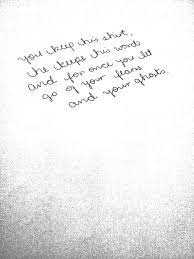 you keep his shirt,
he keeps his word
and for once you let
go of your fears
and your ghosts.